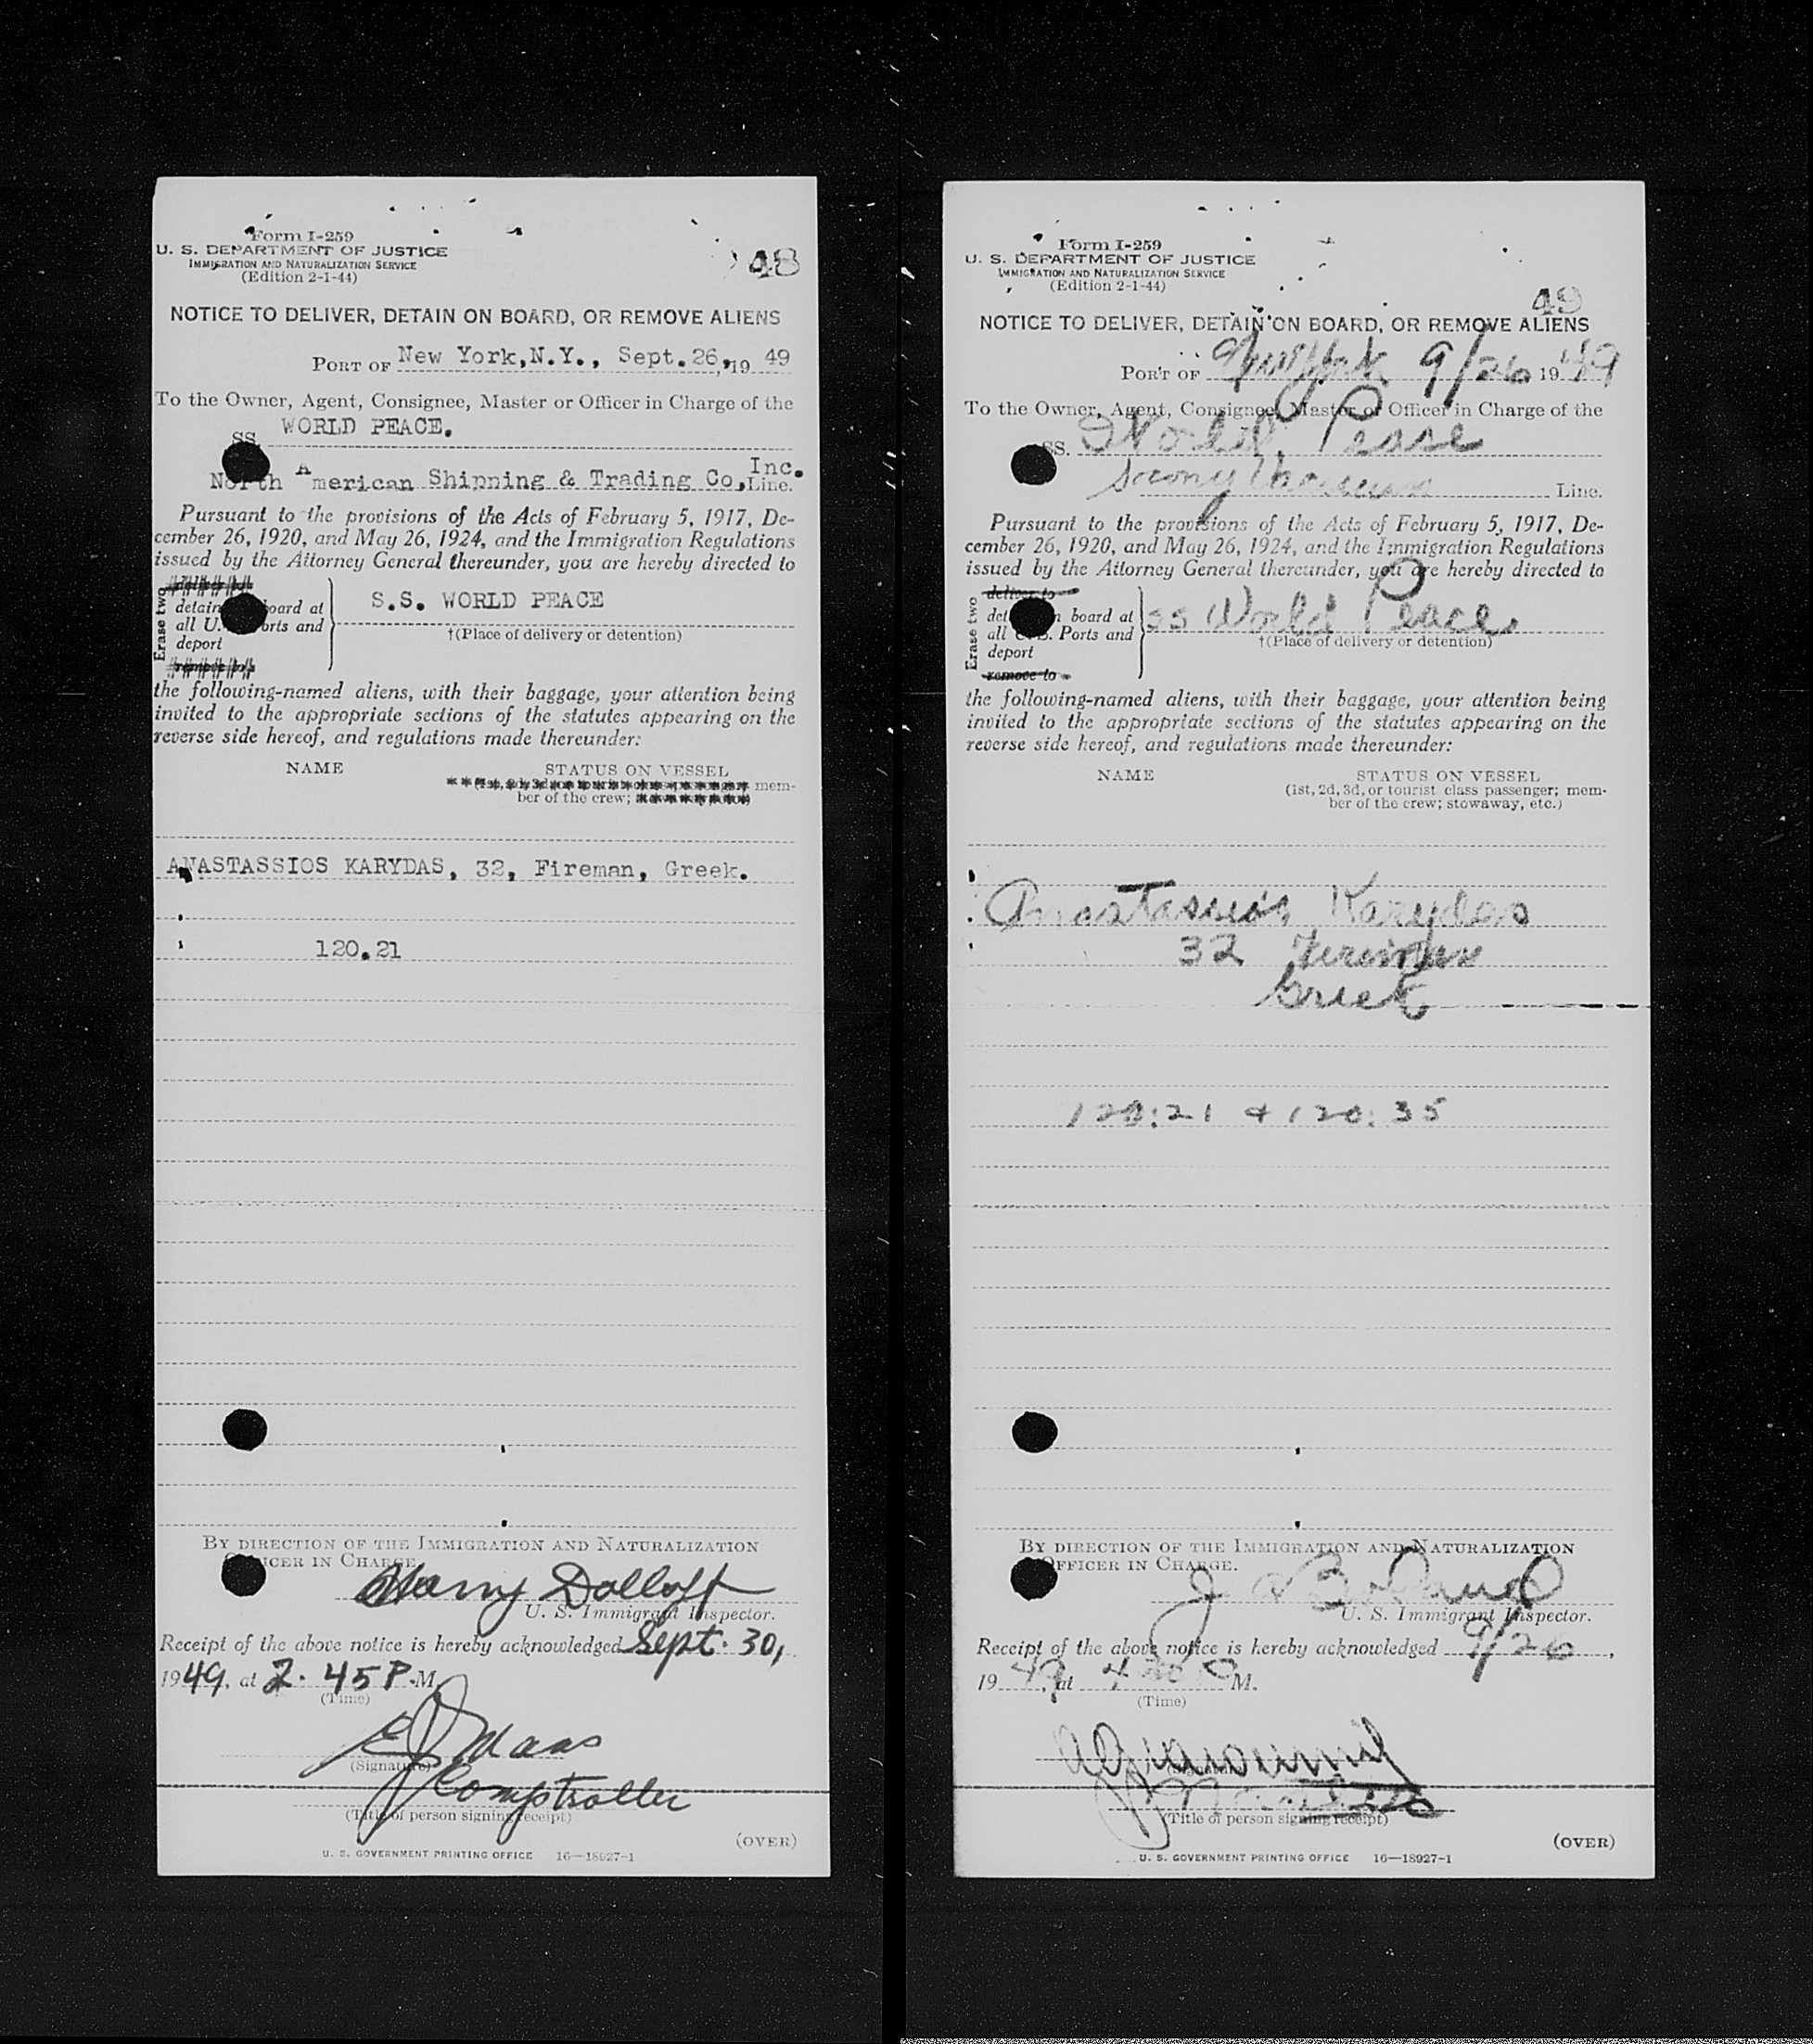 Form I-259
U. S. DEPARTMENT OF JUSTICE
IMMIGRATION AND NATURALIZATION SERVICE
(Edition 2-1-44)
48
NOTICE TO DELIVER, DETAIN ON BOARD, OR REMOVE ALIENS
PORT OF New York,N.Y., Sept.26, 19 49
To the Owner, Agent, Consignee, Master or Officer in Charge of the
SS. WORLD PEACE.
North American Shipping & Trading Co, Inc. Line.
Pursuant to the provisions of the Acts of February 5, 1917, De-
cember 26, 1920, and May 26, 1924, and the Immigration Regulations
issued by the Attorney General thereunder, you are hereby directed to
Erase two
detain board at
all U. orts and
deport
S.S. WORLD PEACE
†(Place of delivery or detention)
the following-named aliens, with their baggage, your attention being
invited to the appropriate sections of the statutes appearing on the
reverse side hereof, and regulations made thereunder:
NAME STATUS ON VESSEL
mem-
ber of the crew;
ANASTASSIOS KARYDAS, 32, Fireman, Greek.
120.21
BY DIRECTION OF THE IMMIGRATION AND NATURALIZATION
OFFICER IN CHARGE.
Harry Dolloff
U. S. Immigrant Inspector.
Receipt of the above notice is hereby acknowledged Sept. 30,
1949, at 2.45 P.M.
(Time)
E J Maas
(Signature)
Comptroller
(Title of person signing receipt)
(OVER)
U. S. GOVERNMENT PRINTING OFFICE 16—18927-1
Form I-259
U. S. DEPARTMENT OF JUSTICE
IMMIGRATION AND NATURALIZATION SERVICE
(Edition 2-1-44)
49
NOTICE TO DELIVER, DETAIN ON BOARD, OR REMOVE ALIENS
PORT OF New York 9/26 19 49
To the Owner, Agent, Consignee, Master or Officer in Charge of the
SS. World Peace
Socony Line.
Pursuant to the provisions of the Acts of February 5, 1917, De-
cember 26, 1920, and May 26, 1924, and the Immigration Regulations
issued by the Attorney General thereunder, you are hereby directed to
Erase two
deliver to
det n board at
all U.S. Ports and
deport
remove to
SS World Peace
†(Place of delivery or detention)
the following-named aliens, with their baggage, your attention being
invited to the appropriate sections of the statutes appearing on the
reverse side hereof, and regulations made thereunder:
NAME STATUS ON VESSEL
(1st, 2d, 3d, or tourist class passenger; mem-
ber of the crew; stowaway, etc.)
Anastassios Karydas
32 Fireman
Greek
120:21 & 120:35
BY DIRECTION OF THE IMMIGRATION AND NATURALIZATION
OFFICER IN CHARGE.
U. S. Immigrant Inspector.
Receipt of the above notice is hereby acknowledged 9/26,
19 49, at M.
(Time)
(Title of person signing receipt)
(OVER)
U. S. GOVERNMENT PRINTING OFFICE 16—18927-1